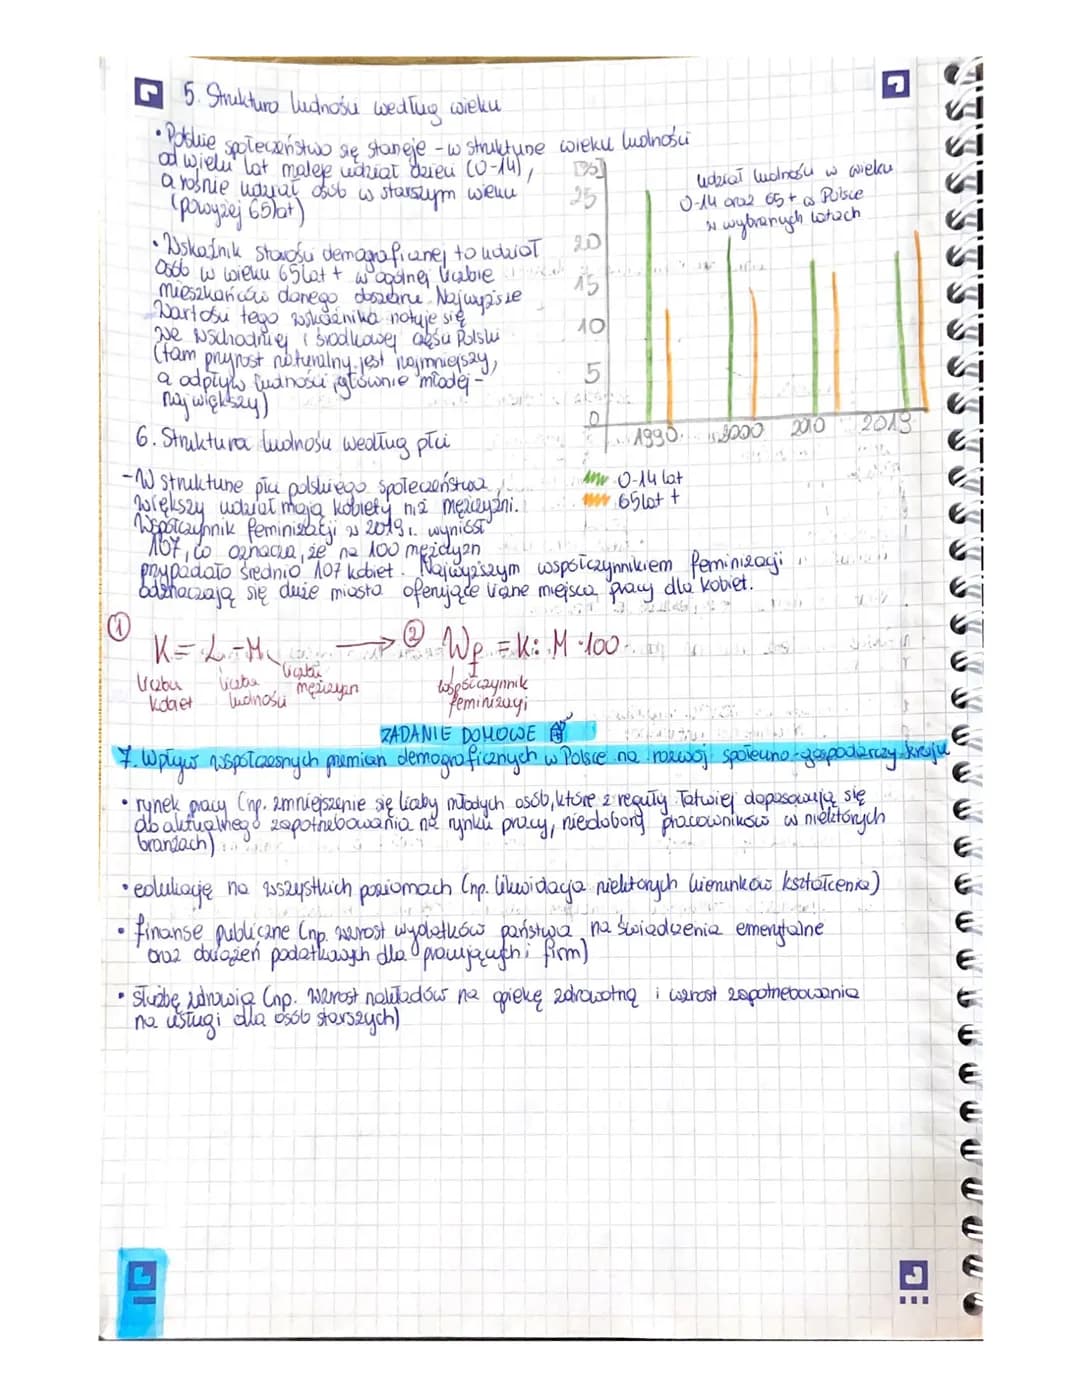 5. Struktura ludności według wieku
• Polskie społeczeństwo się starzeje - w strukturze wieku ludności
od wielu lat maleje udział dzieci (0-14),
a rośnie udział osób w starszym wieku
(powyżej 65 lat)
• Wskaźnik starości demograficznej to udział
osób w wieku 65 lat + w ogólnej liczbie
mieszkańców danego obszaru. Najwyższe
wartości tego wskaźnika notuje się
we wschodniej i środkowej części Polski
(tam przyrost naturalny jest najmniejszy,
a odpływ ludności, głównie młodej -
największy)
[%]
25
20
15
10
5
0
udział ludności w wieku
0-14 oraz 65+ w Polsce
w wybranych latach
1990 2000 2010 2019
0-14 lat
65 lat +
6. Struktura ludności według płci
- W strukturze płci polskiego społeczeństwa
większy udział mają kobiety niż mężczyźni.
Współczynnik feminizacji w 2019 r. wyniósł
107, co oznacza, że na 100 mężczyzn
przypadało średnio 107 kobiet. Najwyższym współczynnikiem feminizacji
odznaczają się duże miasta oferujące liczne miejsca pracy dla kobiet.
① K = L - M → ② Wf = K : M · 100
liczba kobiet
liczba ludności
liczba mężczyzn
współczynnik
feminizacji
ZADANIE DOMOWE
7. Wpływ współczesnych przemian demograficznych w Polsce na rozwój społeczno-gospodarczy kraju
• rynek pracy (np. zmniejszenie się liczby młodych osób, które z reguły łatwiej dopasowują się
do aktualnego zapotrzebowania na rynku pracy, niedobory pracowników w niektórych
branżach)
• edukację na wszystkich poziomach (np. likwidacja niektórych kierunków kształcenia)
• finanse publiczne (np. wzrost wydatków państwa na świadczenia emerytalne
oraz obciążeń podatkowych dla pracujących i firm)
• służbę zdrowia (np. wzrost nakładów na opiekę zdrowotną i wzrost zapotrzebowania
na usługi dla osób starszych)